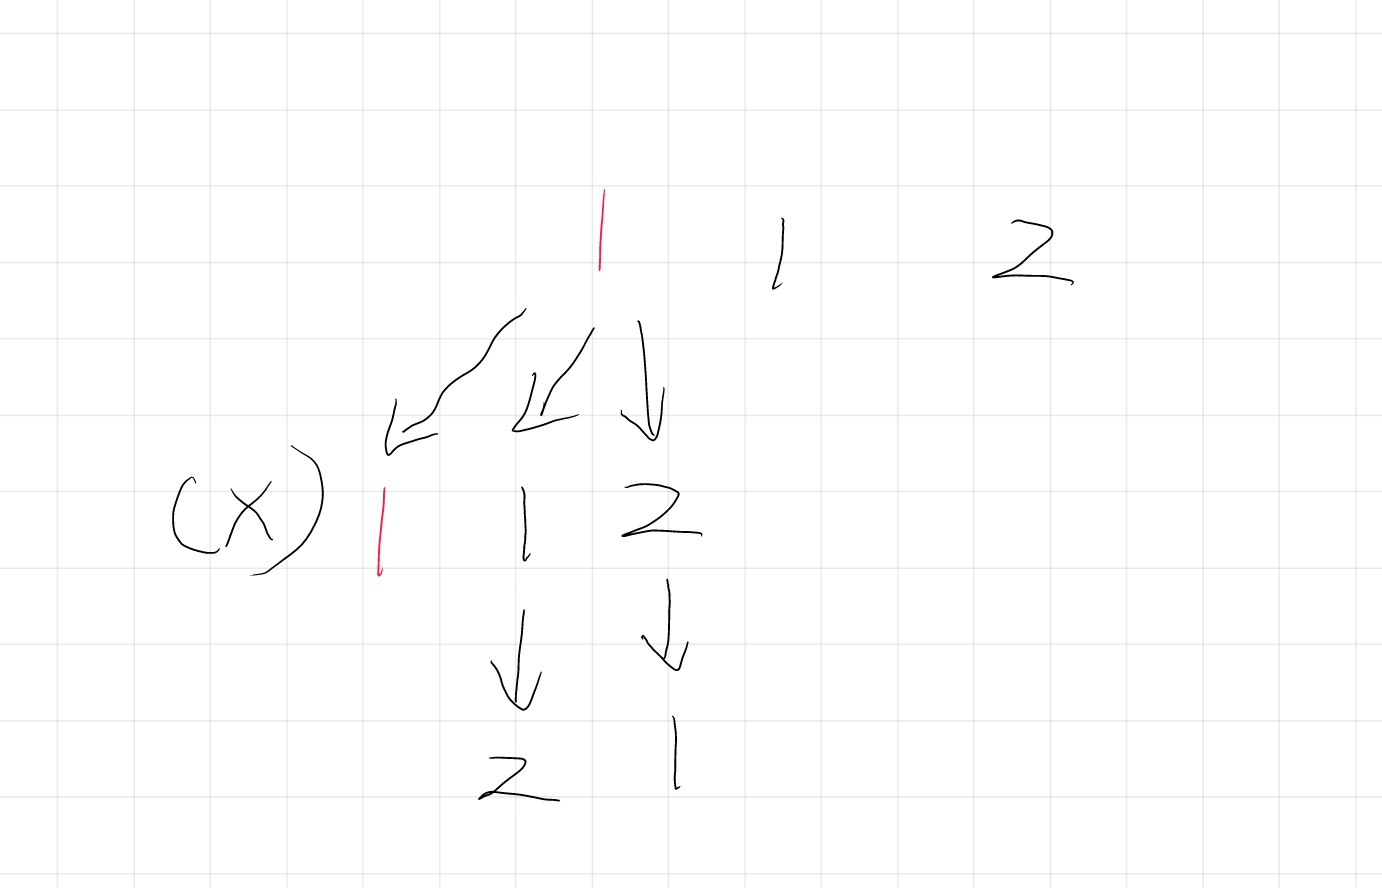 1 1 2
(x) 1 1 2
2 1